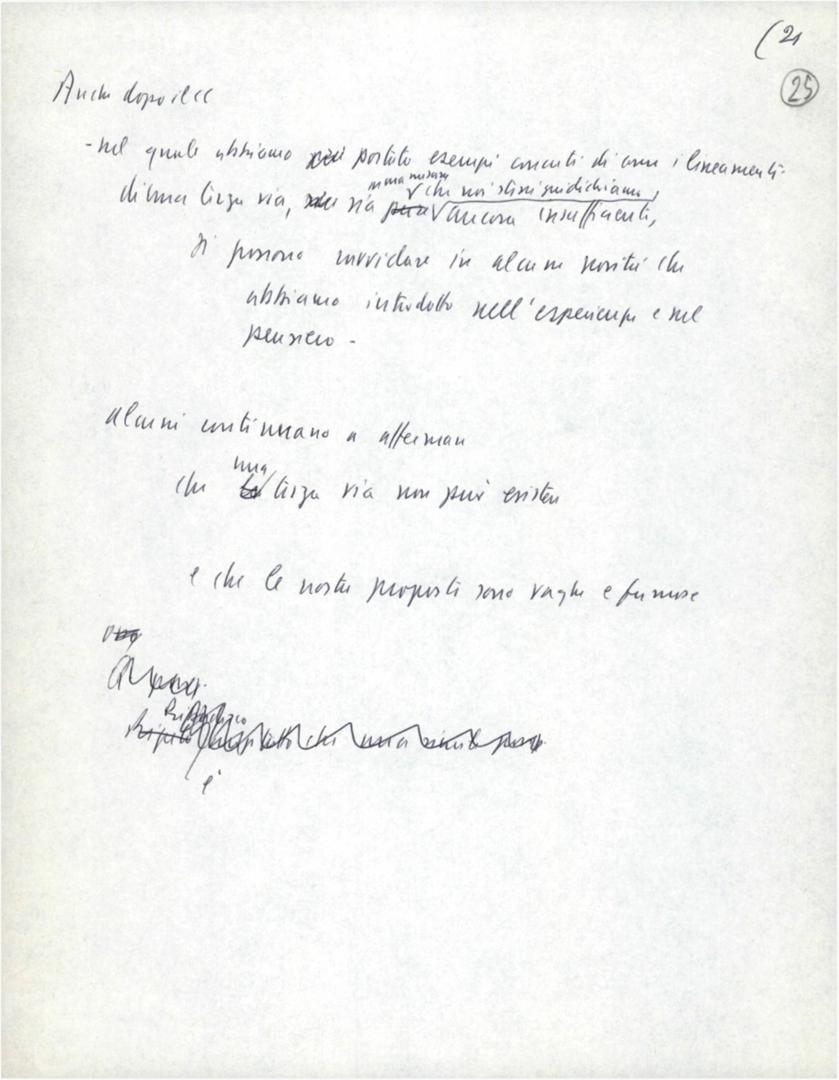 (21
25
Anche dopo il CC
- nel quale abbiamo portato esempi concreti di come i lineamenti
in una misura che noi stessi giudichiamo,
di una terza via, sia ancora insufficienti,
si possono in alcune novità che
abbiamo introdotto nell'esperienza e nel
pensiero -
alcuni continuano a affermare
che una terza via non può esistere
e che le nostre proposte sono vaghe e fumose
è